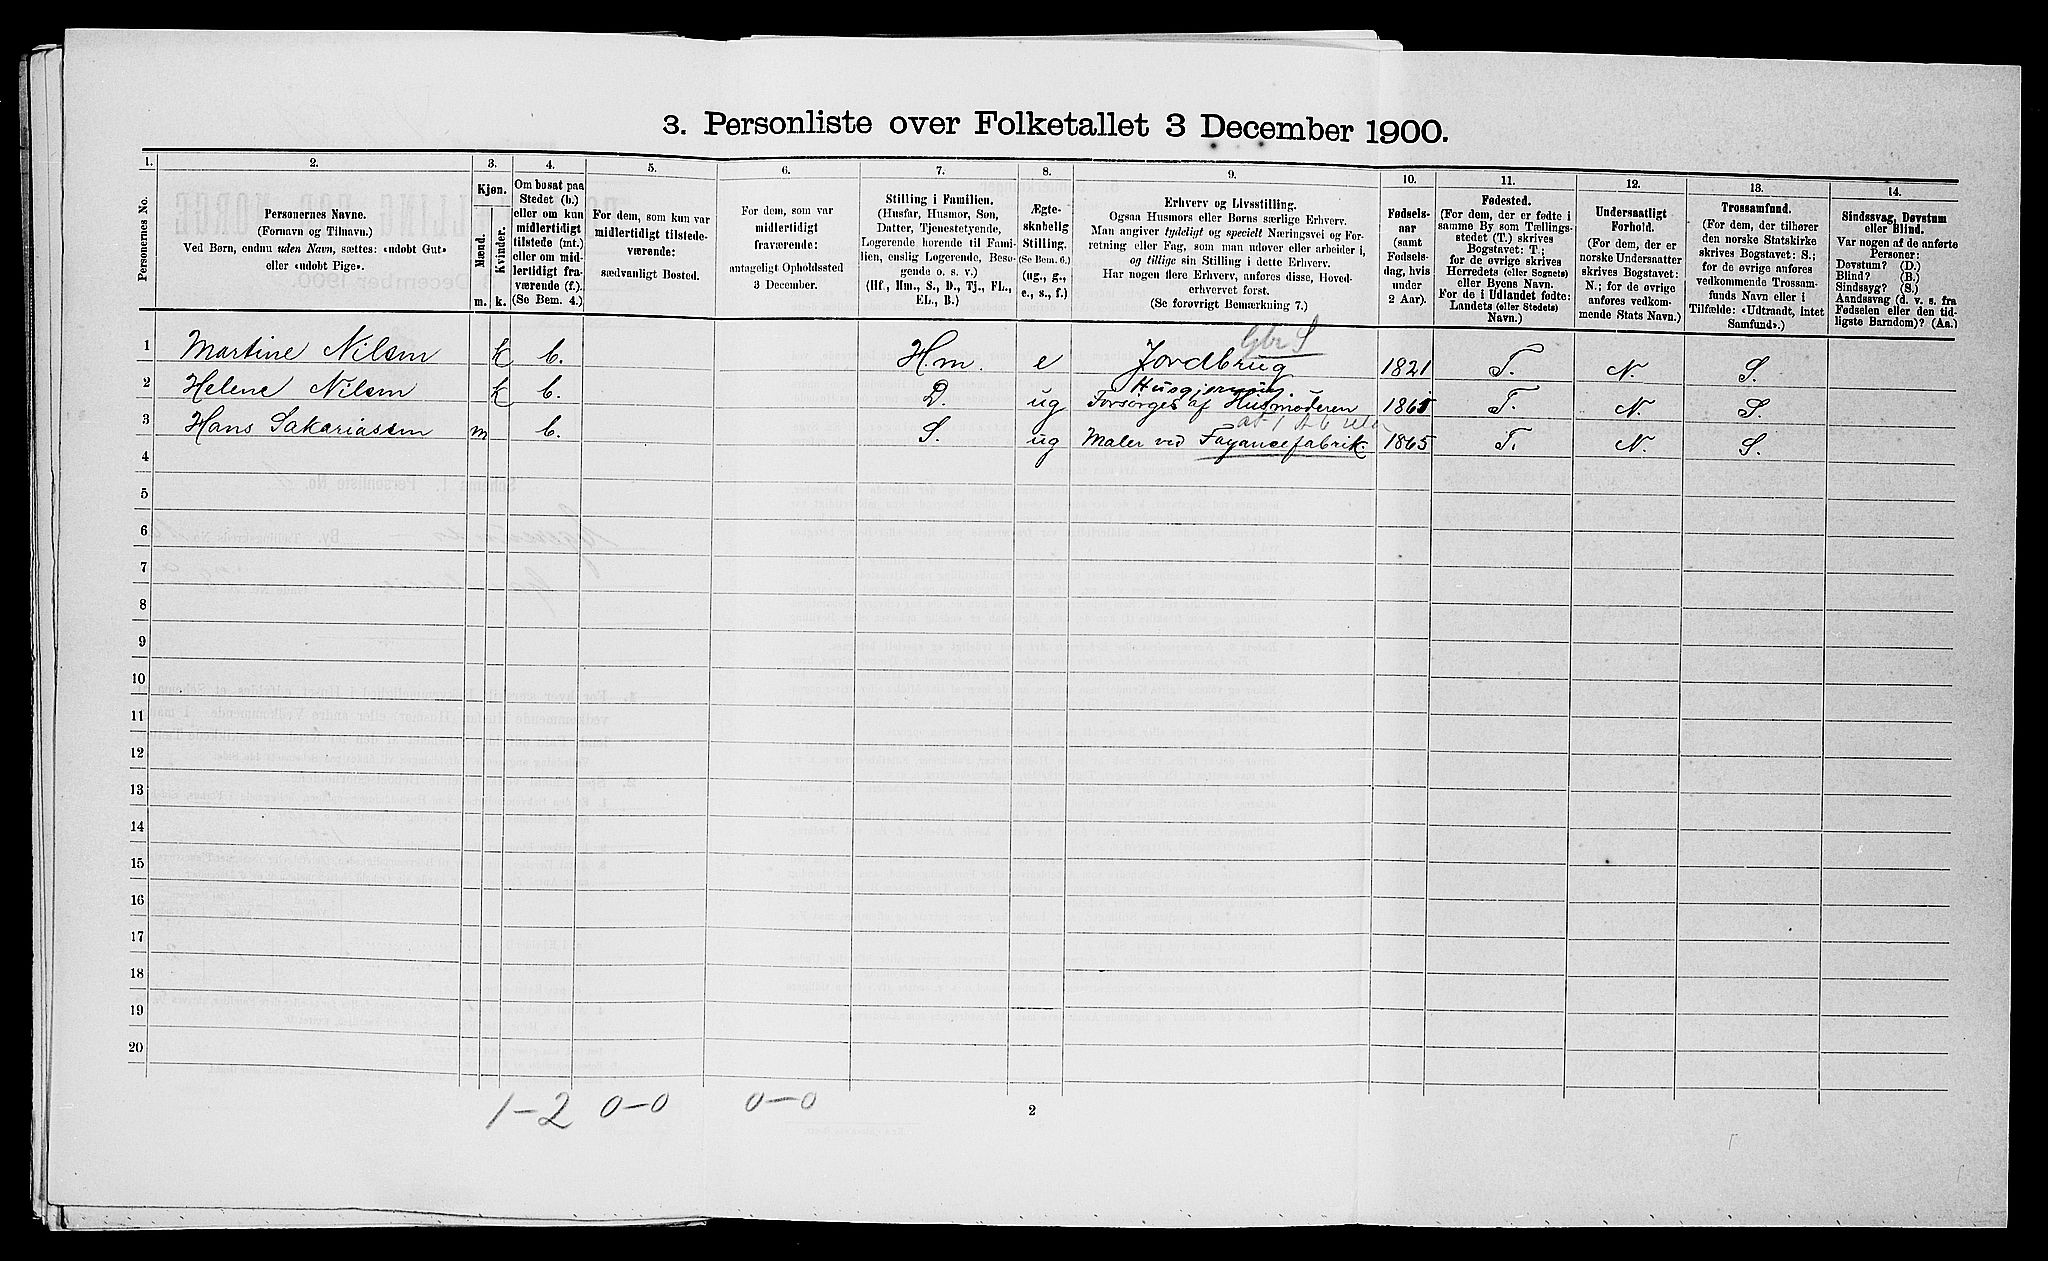 3. Personliste over Folketallet 3 December 1900.
1. 2. 3. 4. 5. 6. 7. 8. 9. 10. 11. 12. 13. 14.
Personernes No.
Personernes Navne.
(Fornavn og Tilnavn.)
Ved Børn, endnu uden Navn, sættes: «udobt Gut»
eller «udobt Pige».
Kjøn.
Mænd.
Kvinder.
m. k.
Om bosat paa
Stedet (b.)
eller om kun
midlertidigt
tilstede (mt.)
eller om mid-
lertidigt fra-
værende (f.).
(Se Bem. 4.)
For dem, som kun var
midlertidigt tilstede-
værende:
sædvanligt Bosted.
For dem, som var
midlertidigt
fraværende:
antageligt Opholdssted
3 December.
Stilling i Familien.
(Husfar, Husmor, Søn,
Datter, Tjenestetyende,
Logerende horende til Fami-
lien, enslig Logerende, Besø-
gende o. s. v.)
(Hf., Hm., S., D., Tj., FL.,
EL., B.)
Ægte-
skabelig
Stilling.
(Se Bem. 6.)
(ug., g.,
e., s., f.)
Erhverv og Livsstilling.
Ogsaa Husmors eller Børns særlige Erhverv.
Man angiver tydeligt og specielt Næringsvei og For-
retning eller Fag, som man udøver eller arbeider i,
og tillige sin Stilling i dette Erhverv.
Har nogen flere Erhverv, anføres disse, Hoved-
erhvervet først.
(Se forøvrigt Bemærkning 7.)
Fødsels-
aar
(samt
Fødsels-
dag, hvis
under
2 Aar).
Fødested.
(For dem, der er fødte i
samme By som Tællings-
stedet (T.) skrives
Bogstavet: T.;
for de øvrige skrives
Herredets (eller Sognets)
eller Byens Navn.
For de i Udlandet fødte:
Landets (eller Stedets)
Navn.)
Undersaatligt
Forhold.
(For dem, der er
norske Undersaatter
skrives Bogstavet:
N.; for de øvrige
anføres vedkom-
mende Stats Navn.)
Trossamfund.
(For dem, der tilhører
den norske Statskirke
skrives Bogstavet: S.;
for de øvrige anføres
vedkommende Trossam-
funds Navn eller i
Tilfælde: «Udtraadt, intet
Samfund».)
Sindssvag, Døvstum
eller Blind.
Var nogen af de anførte
Personer:
Døvstum? (D.)
Blind? (B.)
Sindssyg? (S.)
Aandssvag (d. v. s. fra
Fødselen eller den tid-
ligste Barndom)? (Aa.)
Gbr S
1 Martine Nilsen k b. H.m. e Jordbrug 1821 T. N. S.
2 Helene Nilsen k b. D. ug Forsørges af Husmoderen 1865 T. N. S.
3 Hans Sakariassen m b. S. ug Maler ved Fayancefabrik. 1865 T. N. S.
4
5
6
7
8
9
10
11
12
13
14
15
16
17
18
19
20
1-2 0-0 0-0
2